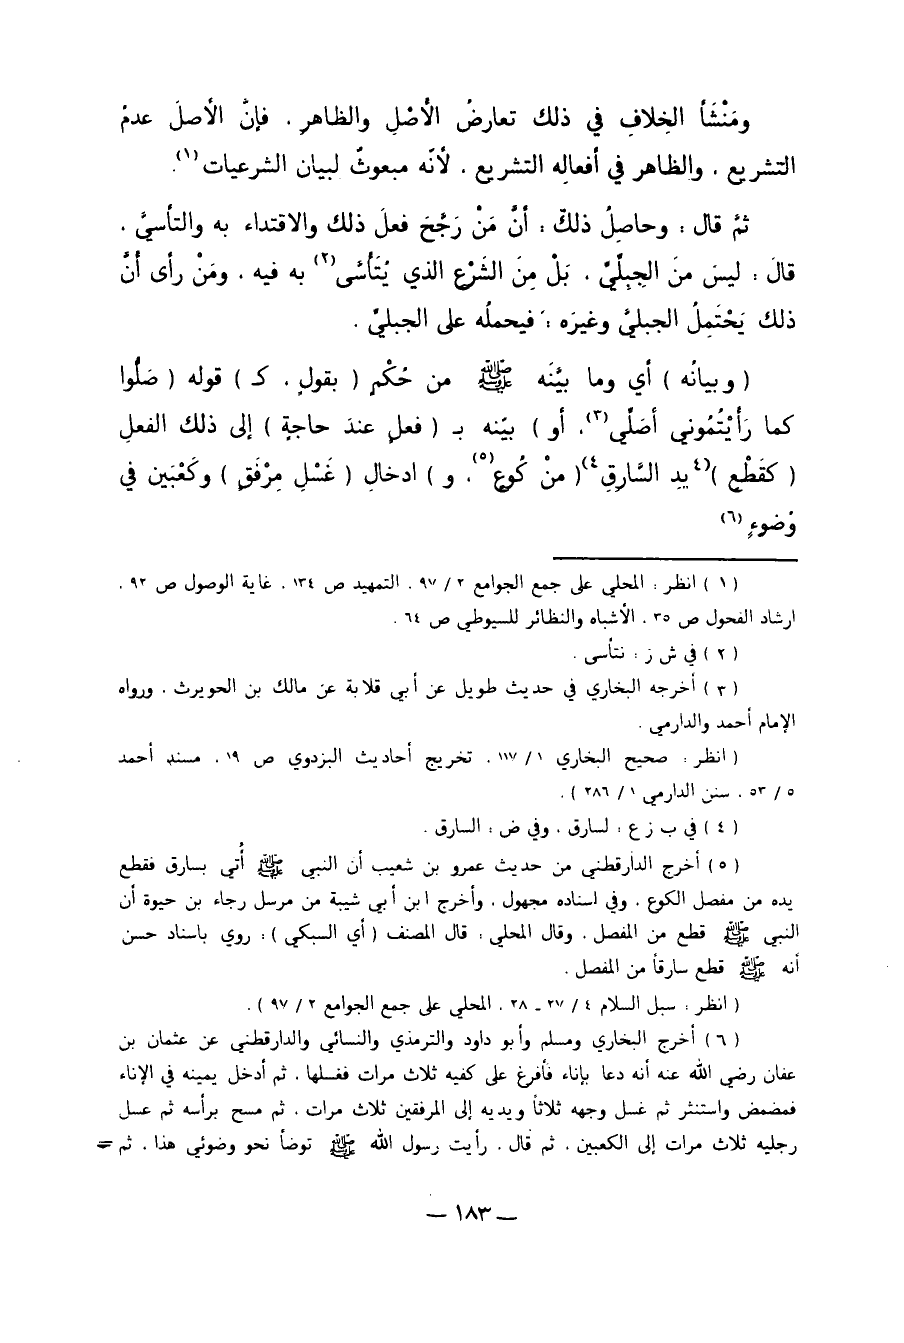 ومَنْشَأ الخِلافِ في ذلك تعارضُ الأصْلِ والظاهرِ . فإنَّ الأصلَ عدمُ
التشريع . والظاهر في أفعالِه التشريع . لأنّه مبعوثٌ لبيان الشرعيات (١).
ثمَّ قال : وحاصِلُ ذلك : أنَّ مَنْ رَجَّحَ فعلَ ذلك والاقتداء به والتأسيَّ .
قالَ : ليسَ منَ الجِبِلِّيِّ . بَلْ مِنَ الشَرْع الذي يُتَأسَّى (٢) به فيه . ومَنْ رأى أنَّ
ذلك يَحْتَمِلُ الجبليَّ وغيرَه : فيحملُه على الجبليّ .
( وبيانُه ) أي وما بيَّنَه ﷺ من حُكْمٍ ( بقولٍ . كـ ) قوله ( صَلُّوا
كما رَأيْتُمُوني أصَلِّي (٣). أو ) بيّنه بـ ( فعلٍ عندَ حاجةٍ ) إلى ذلك الفعلِ
( كقَطْعِ )(٤ يدِ السَّارِقِ ٤)( منْ كُوعٍ (٥). و ) ادخالِ ( غَسْلِ مِرْفَقٍ ) وكَعْبَين في
وُضوءٍ (٦)
( ١ ) انظر : المحلي على جمع الجوامع ٢ / ٩٧ . التمهيد ص ١٣٤ . غاية الوصول ص ٩٢ .
ارشاد الفحول ص ٣٥ . الأشباه والنظائر للسيوطي ص ٦٤ .
( ٢ ) في ش ز : نتأسى .
( ٣ ) أخرجه البخاري في حديث طويل عن أبي قلابة عن مالك بن الحويرث . ورواه
الإمام أحمد والدارمي .
( انظر : صحيح البخاري ١ / ١١٧ . تخريج أحاديث البزدوي ص ١٩ . مسند أحمد
٥ / ٥٣ . سنن الدارمي ١ / ٢٨٦ ) .
( ٤ ) في ب ز ع : لسارق . وفي ض : السارق .
( ٥ ) أخرج الدارقطني من حديث عمرو بن شعيب أن النبي ﷺ أُتي بسارق فقطع
يده من مفصل الكوع . وفي اسناده مجهول . وأخرج ابن أبي شيبة من مرسل رجاء بن حيوة أن
النبي ﷺ قطع من المفصل . وقال المحلي : قال المصنف ( أي السبكي ) : روي باسناد حسن
أنه ﷺ قطع سارقاً من المفصل .
( انظر : سبل السلام ٤ / ٢٧ ـ ٢٨ . المحلي على جمع الجوامع ٢ / ٩٧ ) .
( ٦ ) أخرج البخاري ومسلم وأبو داود والترمذي والنسائي والدارقطني عن عثمان بن
عفان رضي الله عنه أنه دعا بإناء فأفرغ على كفيه ثلاث مرات فغسلها . ثم أدخل يمينه في الإناء
فمضمض واستنثر ثم غسل وجهه ثلاثاً ويديه إلى المرفقين ثلاث مرات . ثم مسح برأسه ثم غسل
رجليه ثلاث مرات إلى الكعبين . ثم قال . رأيت رسول الله ﷺ توضأ نحو وضوئي هذا . ثم =
— ١٨٣ —